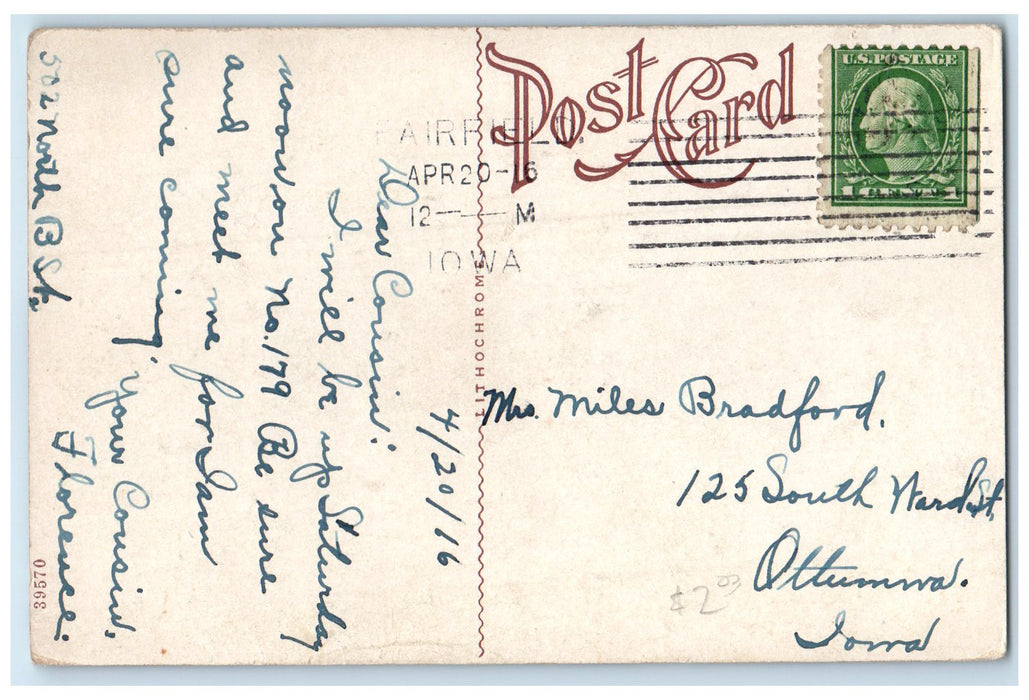 Post Card
U.S. POSTAGE
1 CENT 1
FAIRFIELD.
APR 20-16
12 M
IOWA
LITHOCHROME
39570
4/20/16
Dear Cousin:
I will be up Saturday
noon on No. 179 Be sure
and meet me for I am
sure coming,
Your Cousin,
Florence.
502 North B St.
Mrs. Miles Bradford.
125 South Ward St.
Ottumwa.
Iowa
$2.03